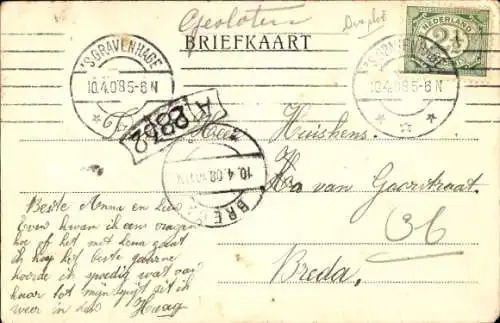 Gesloten
BRIEFKAART
NEDERLAND
2½
'S GRAVENHAGE
10.4.08.5-6 N
'S GRAVENHAGE
10.4.08.5-6 N
A 2862
10.4.08
BREDA
Huiskens.
van Goorstraat.
36
Breda.
Beste Anna en
Even kwam ik een vragen
hoe of het met Lena gaat
ik hoop het beste gaarne
hoorde ik spoedig wat van
haar tot mijn spijt zit ik
weer in den Haag